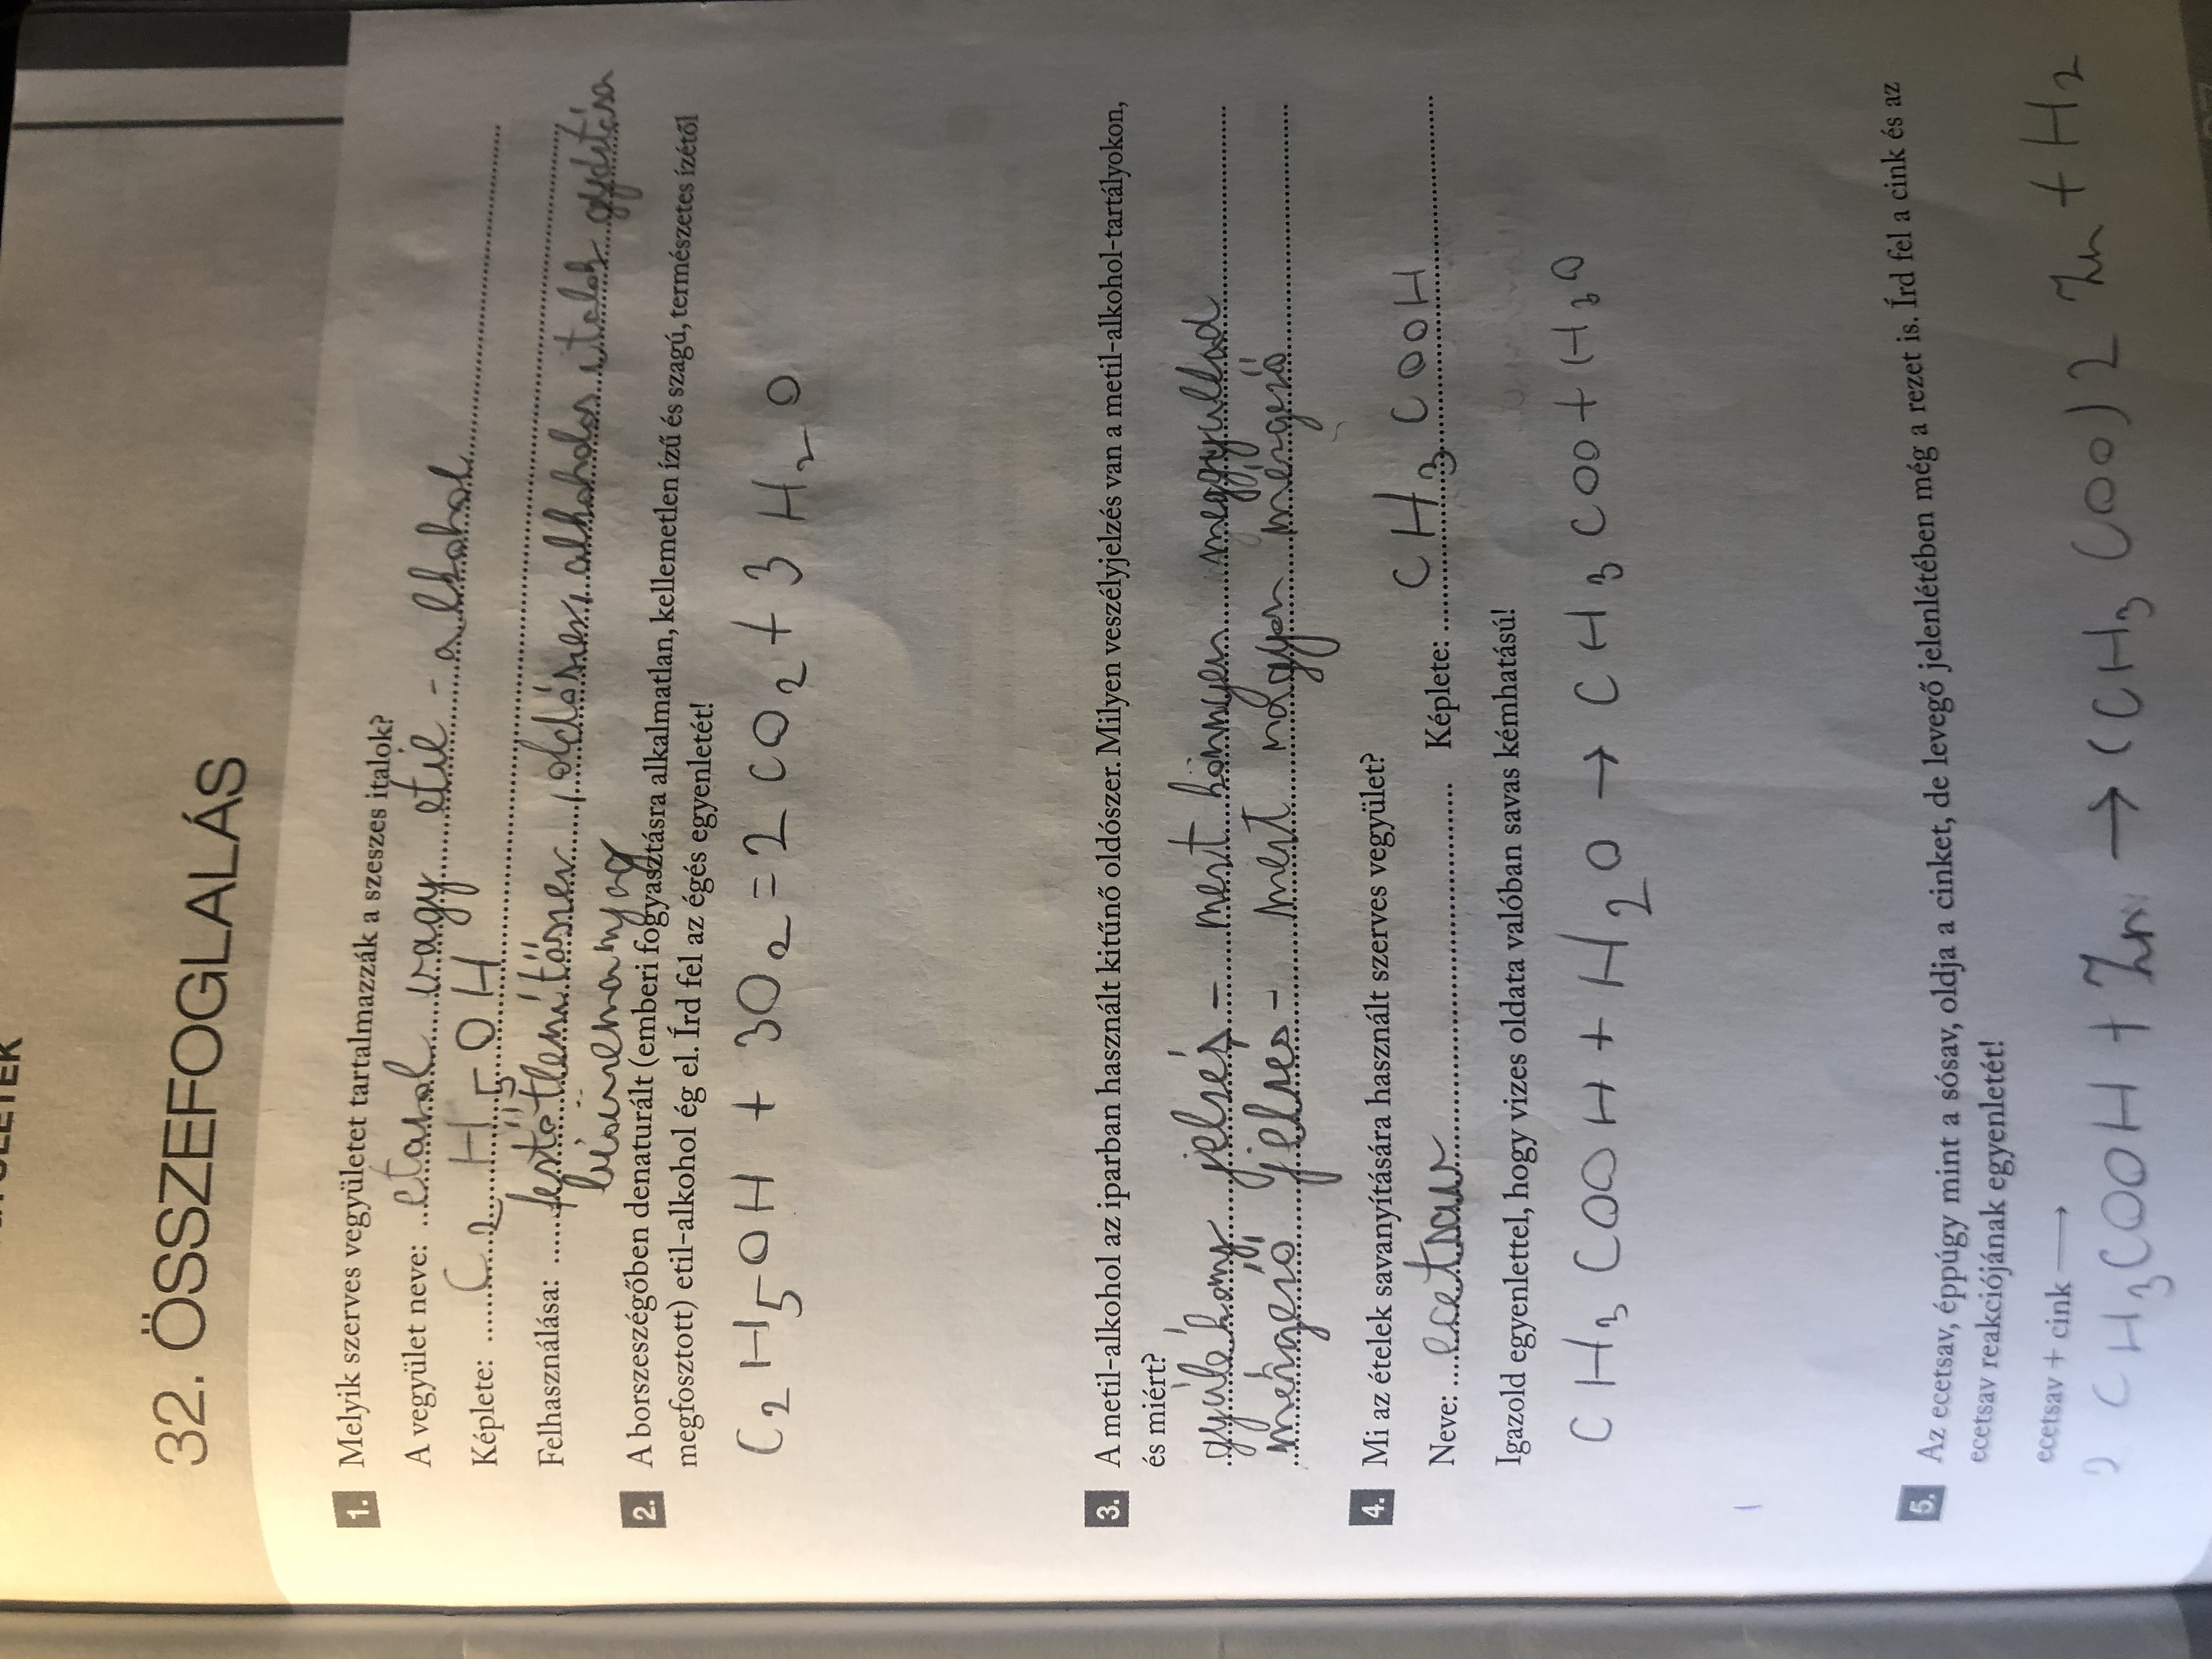 32. ÖSSZEFOGLALÁS
1. Melyik szerves vegyületet tartalmazzák a szeszes italok?
A vegyület neve: etanol vagy etil-alkohol
Képlete: C2H5OH
Felhasználása: fertőtlenítőszer, oldószer, alkoholos italok
2. A borszeszégőben denaturált (emberi fogyasztásra alkalmatlan, kellemetlen ízű és szagú, természetes ízétől
megfosztott) etil-alkohol ég el. Írd fel az égés egyenletét!
C2H5OH + 3O2 = 2CO2 + 3H2O
3. A metil-alkohol az iparban használt kitűnő oldószer. Milyen veszélyjelzés van a metil-alkohol-tartályokon,
és miért?
gyúlékony jelzés - mert könnyen meggyullad
mérgező jelzés - mert nagyon mérgező
4. Mi az ételek savanyítására használt szerves vegyület?
Neve: ecetsav Képlete: CH3COOH
Igazold egyenlettel, hogy vizes oldata valóban savas kémhatású!
CH3COOH + H2O → CH3COO + H3O
5. Az ecetsav, éppúgy mint a sósav, oldja a cinket, de levegő jelenlétében még a rezet is. Írd fel a cink és az
ecetsav reakciójának egyenletét!
ecetsav + cink →
2 CH3COOH + Zn → (CH3COO)2 Zn + H2